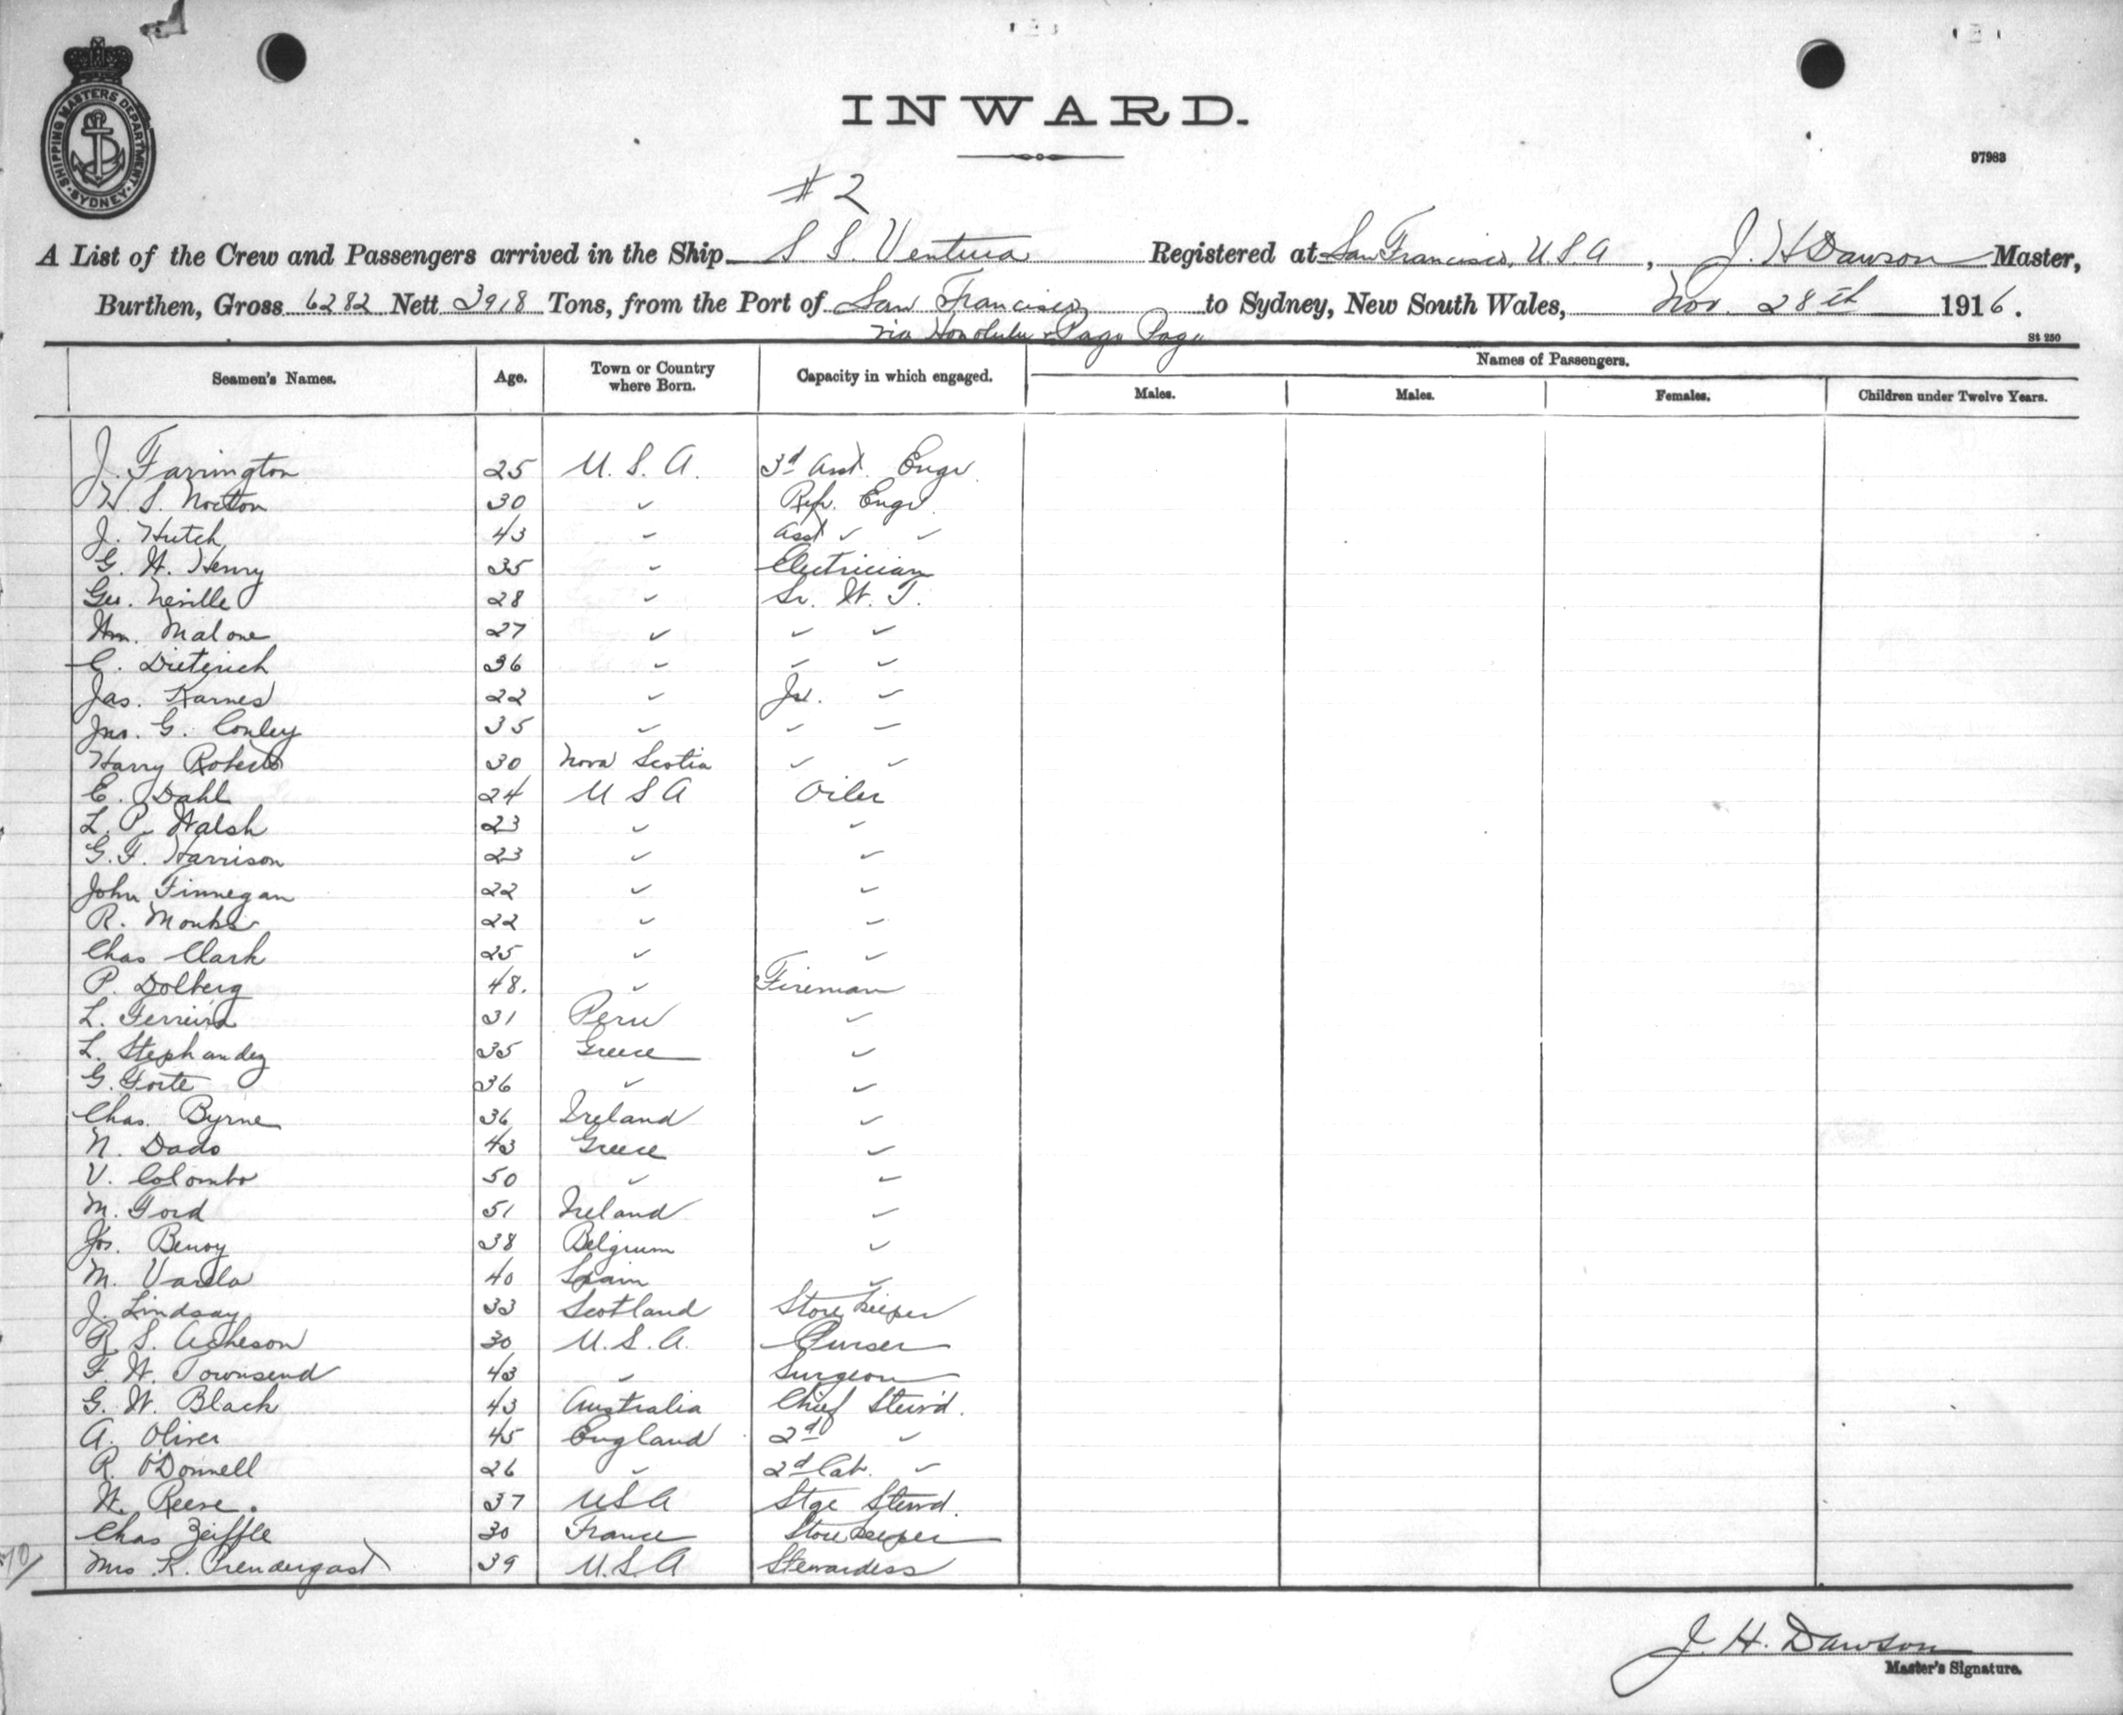 SHIPPING MASTERS DEPARTMENT. SYDNEY
INWARD.
97983
# 2
A List of the Crew and Passengers arrived in the Ship S S. Ventura Registered at San Francisco, U.S.A, J. H Dawson Master,
Burthen, Gross 6282 Nett 3918 Tons, from the Port of San Francisco to Sydney, New South Wales, Nov. 28th 1916.
via Honolulu & Pago Pago
St 250
Seamen's Names. Age. Town or Country where Born. Capacity in which engaged. Names of Passengers.
Males. Males. Females. Children under Twelve Years.
J. Farrington 25 U. S. A. 3d Asst. Engr.
H. S. Norton 30 " Refr. Engr.
J. Hutch 43 " Asst " "
G. H. Henry 35 " Electrician
Geo. Neville 28 " Sr. W. T.
Wm. Malone 27 " " "
C. Dieterich 36 " " "
Jas. Karnes 22 " Jr. "
Jno. G. Conley 35 " " "
Harry Roberts 30 Nova Scotia " "
E. Dahl 24 U S A Oiler
L. P. Walsh 23 " "
G. F. Harrison 23 " "
John Finnegan 22 " "
R. Monks 22 " "
Chas Clark 25 " "
P. Dolberg 48. " Fireman
L. Ferreira 31 Peru "
L. Stephandez 35 Greece "
G. Forte 36 " "
Chas. Byrne 36 Ireland "
N. Dado 43 Greece "
V. Colombo 50 " "
M. Ford 51 Ireland "
Jos. Benoy 38 Belgium "
M. Varela 40 Spain "
J. Lindsay 33 Scotland Store Keeper
R. S. Acheson 30 U. S. A. Purser
F. W. Townsend 43 " Surgeon
G. W. Black 43 Australia Chief Stew'd.
A. Oliver 45 England 2d "
R. O'Donnell 26 " 2d Cab. "
W. Reese. 37 USA Stge Stewd.
Chas Zeiffle 30 France Store Keeper
Mrs K. Prendergast 39 U.S.A Stewardess
J. H. Dawson
Master's Signature.